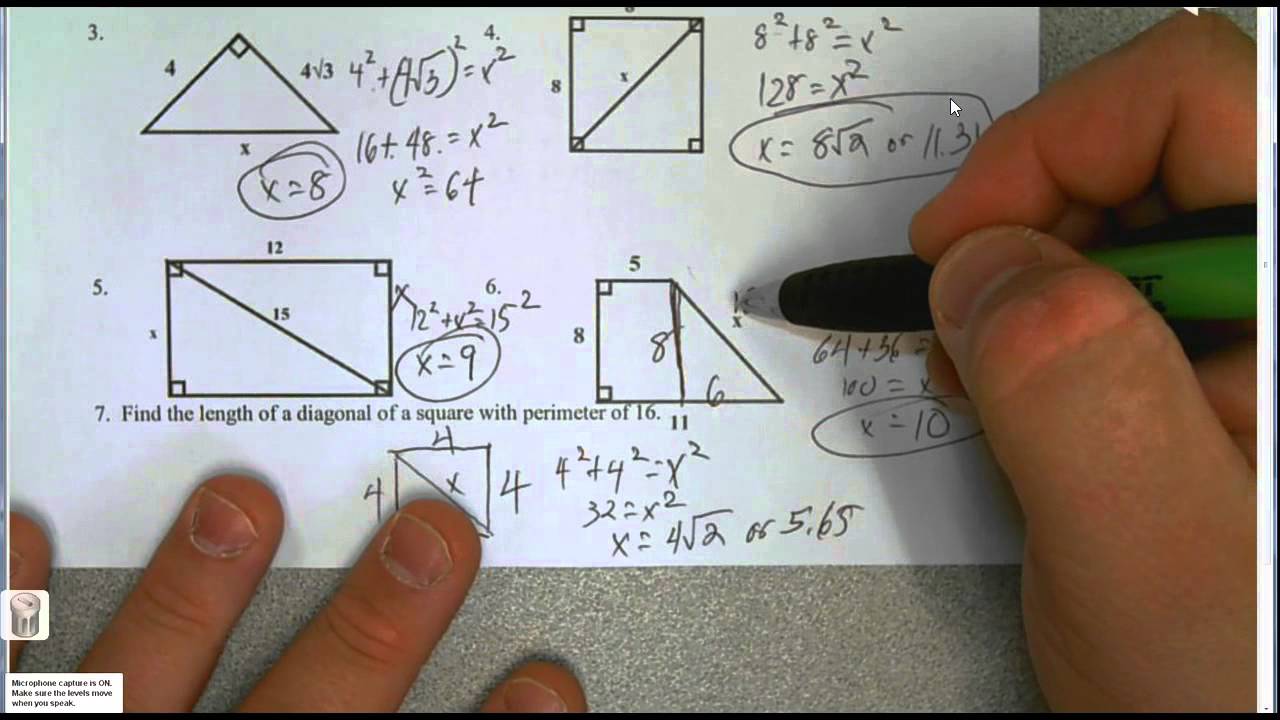 3.
4
4√3
x
4² + (4√3)² = x²
16 + 48 = x²
x² = 64
x = 8
4.
8
8
x
8² + 8² = x²
128 = x²
x = 8√2 or 11.31
5.
12
15
x
x
12² + x² = 15²
x = 9
6.
5
8
8
6
11
x
64 + 36 =
100 = x
x = 10
7. Find the length of a diagonal of a square with perimeter of 16.
4
4
4
x
4² + 4² = x²
32 = x²
x = 4√2 or 5.65
Microphone capture is ON.
Make sure the levels move
when you speak.